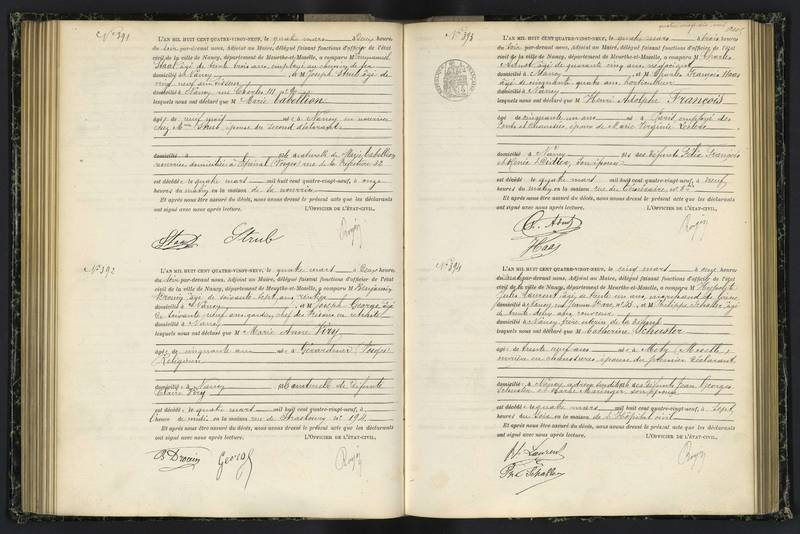 N° 391
L'AN MIL HUIT CENT QUATRE-VINGT-NEUF, le quatre mars à deux heures
du soir par-devant nous, Adjoint au Maire, délégué faisant fonctions d'officier de l'état
civil de la ville de Nancy, département de Meurthe-et-Moselle, a comparu M Emmanuel
âgé de trente trois ans, employé au chemin de fer
domicilié à Nancy et M Joseph Strub âgé de
vingt neuf ans
domicilié à Nancy rue Charles III
lesquels nous ont déclaré que M Marie Cabellion
âgé de neuf mois né à Nancy en nourrice
chez Mme Strub, épouse du second déclarant
domicilié à fille naturelle de Marie Cabellion
domiciliée à Epinal (Vosges) rue de la Préfecture 22
est décédé le quatre mars mil huit cent quatre-vingt-neuf, à onze
heures du matin en la maison de sa nourrice
Et après nous être assuré du décès, nous avons dressé le présent acte que les déclarants
ont signé avec nous après lecture. L'OFFICIER DE L'ÉTAT-CIVIL,
Strub
N° 392
L'AN MIL HUIT CENT QUATRE-VINGT-NEUF, le quatre mars à deux heures
du soir par-devant nous, Adjoint au Maire, délégué faisant fonctions d'officier de l'état
civil de la ville de Nancy, département de Meurthe-et-Moselle, a comparu M Benjamin
Drouin âgé de soixante sept ans rentier
domicilié à Nancy et M Joseph George âgé
de soixante neuf ans gardien chef des Prisons en retraite
domicilié à Nancy
lesquels nous ont déclaré que M Marie Anne Viry
âgé de cinquante ans né à Gérardmer (Vosges)
Religieuse
domicilié à Nancy fille naturelle de défunte
Viry
est décédé le quatre mars mil huit cent quatre-vingt-neuf, à
heure de midi en la maison rue de Strasbourg n° 194
Et après nous être assuré du décès, nous avons dressé le présent acte que les déclarants
ont signé avec nous après lecture. L'OFFICIER DE L'ÉTAT-CIVIL,
B Drouin George
N° 393
L'AN MIL HUIT CENT QUATRE-VINGT-NEUF, le quatre mars à trois heures
du soir par-devant nous, Adjoint au Maire, délégué faisant fonctions d'officier de l'état
civil de la ville de Nancy, département de Meurthe-et-Moselle, a comparu M Charles
âgé de quarante cinq ans négociant
domicilié à Nancy et M Charles François Haas
âgé de cinquante quatre ans horticulteur
domicilié à Nancy
lesquels nous ont déclaré que M Henri Adolphe François
âgé de cinquante un ans né à Paris employé des
Ponts et chaussées, époux de Marie Virginie
domicilié à Nancy fils des défunts François
et son épouse
est décédé le quatre mars mil huit cent quatre-vingt-neuf, à neuf
heures du matin en la maison rue
Et après nous être assuré du décès, nous avons dressé le présent acte que les déclarants
ont signé avec nous après lecture. L'OFFICIER DE L'ÉTAT-CIVIL,
Haas
N° 394
L'AN MIL HUIT CENT QUATRE-VINGT-NEUF, le cinq mars à onze heures
du matin par-devant nous, Adjoint au Maire, délégué faisant fonctions d'officier de l'état
civil de la ville de Nancy, département de Meurthe-et-Moselle, a comparu M Hippolyte
Jules Laurent âgé de trente un ans
domicilié à Nancy et M Philippe Schaller âgé
de trente deux ans, couvreur
domicilié à Nancy frère utérin de la défunte
lesquels nous ont déclaré que M Catherine Schuster
âgé de trente neuf ans né à Metz (Moselle)
ouvrière en chaussures, épouse du premier déclarant
domicilié à Nancy fille des défunts Jean Georges
Schuster et son épouse
est décédé le quatre mars mil huit cent quatre-vingt-neuf, à sept
heures du soir en la maison de l'hôpital civil
Et après nous être assuré du décès, nous avons dressé le présent acte que les déclarants
ont signé avec nous après lecture. L'OFFICIER DE L'ÉTAT-CIVIL,
H. Laurent
Ph. Schaller